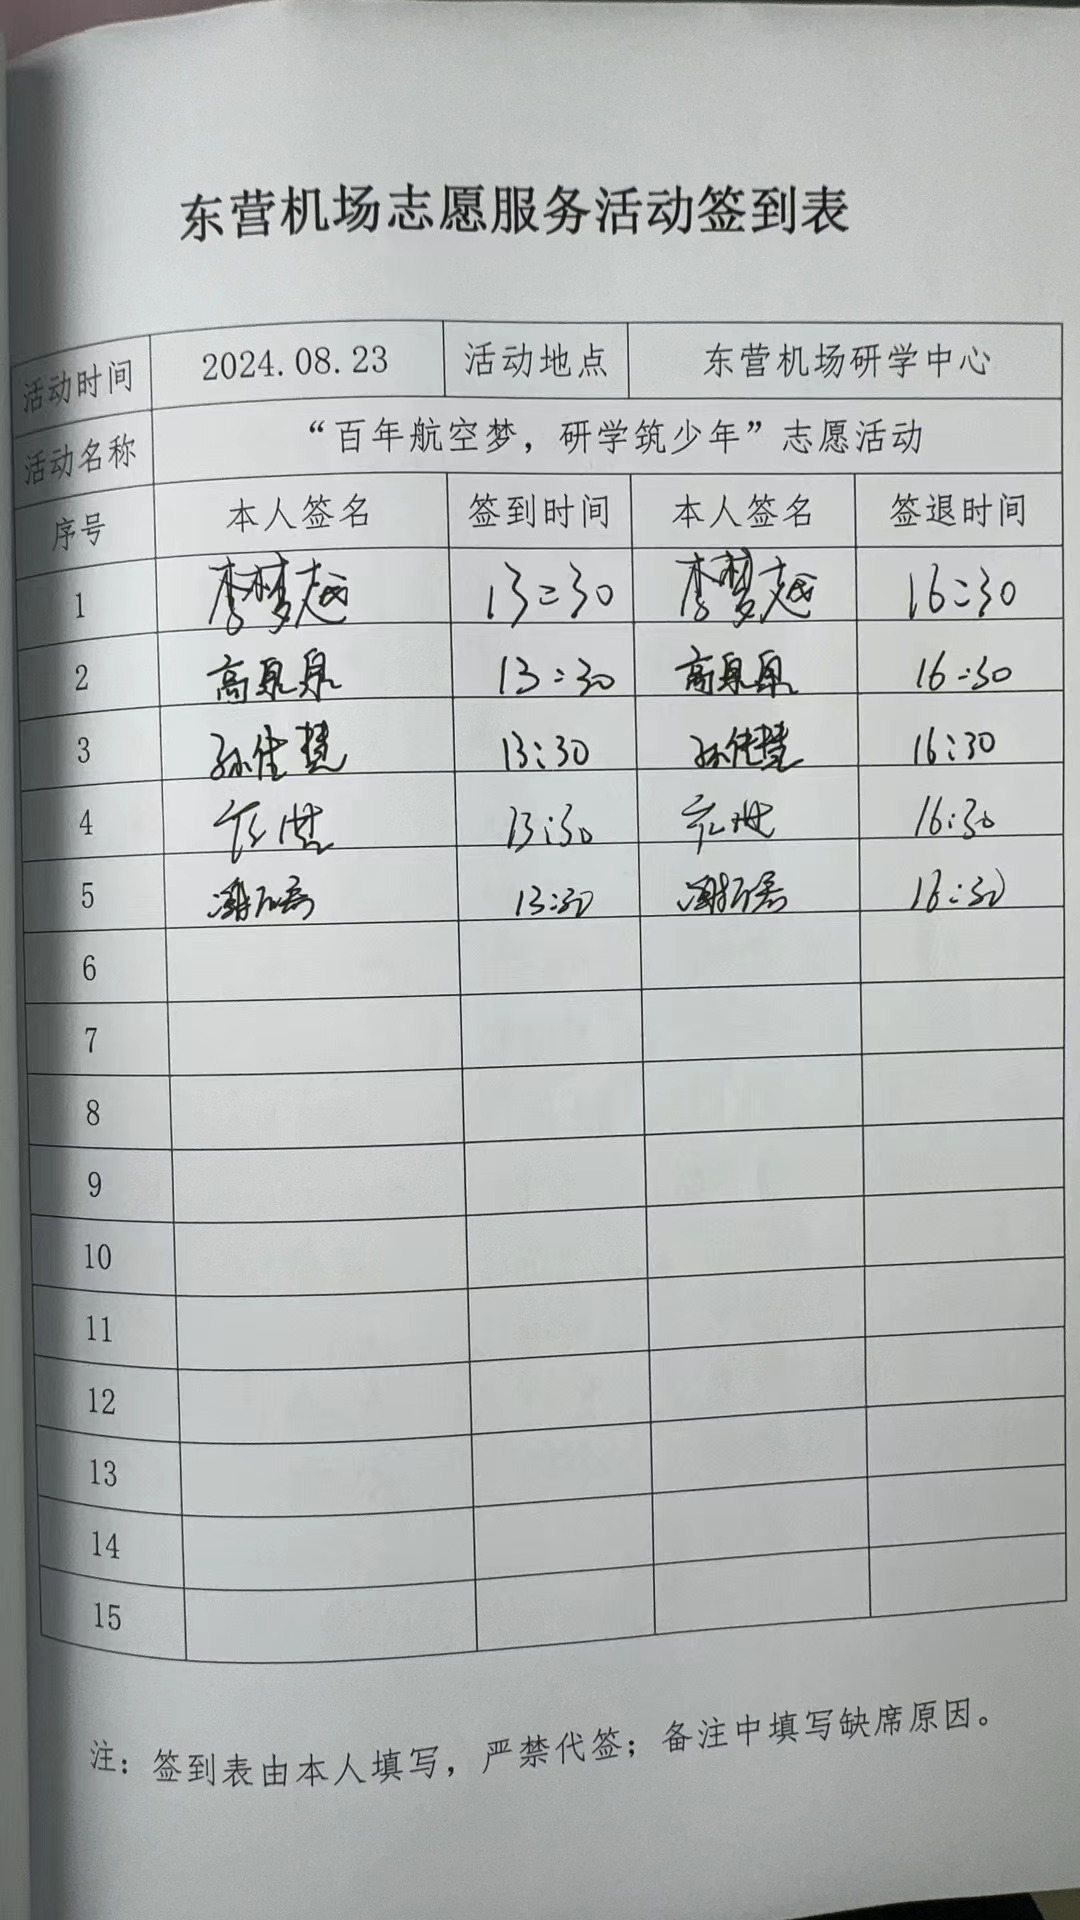 东营机场志愿服务活动签到表
活动时间 2024.08.23 活动地点 东营机场研学中心
活动名称 “百年航空梦，研学筑少年”志愿活动
序号 本人签名 签到时间 本人签名 签退时间
1 李梦越 13:30 李梦越 16:30
2 高泉泉 13:30 高泉泉 16:30
3 孙佳慧 13:30 孙佳慧 16:30
4 13:30 16:30
5 13:30 16:30
6
7
8
9
10
11
12
13
14
15
注：签到表由本人填写，严禁代签；备注中填写缺席原因。